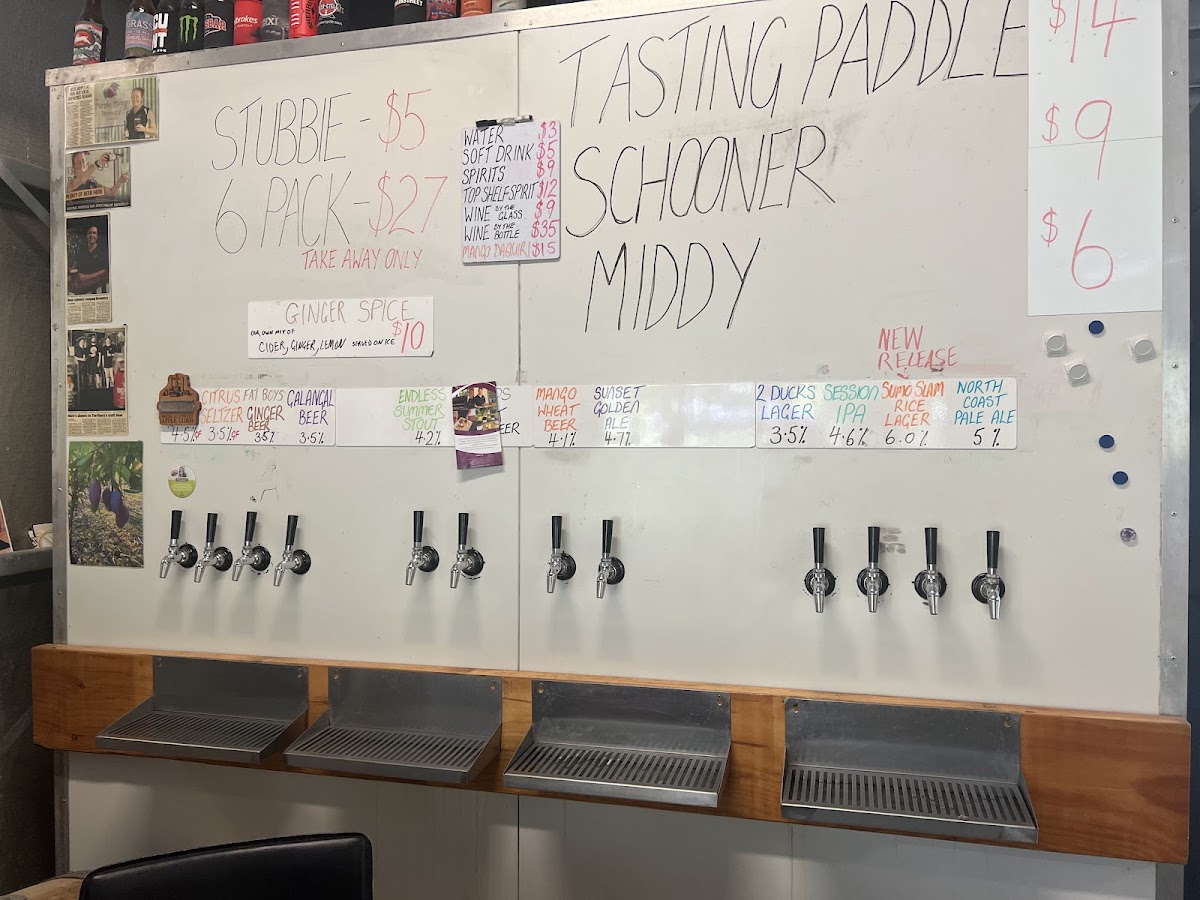 STUBBIE - $5
6 PACK - $27
TAKE AWAY ONLY
WATER $3
SOFT DRINK $5
SPIRITS $9
TOP SHELF SPIRIT $12
WINE BY THE GLASS $9
WINE BY THE BOTTLE $35
MANGO DAQUIRI $15
TASTING PADDLE $14
SCHOONER $9
MIDDY $6
GINGER SPICE
OUR OWN MIX OF
CIDER, GINGER, LEMON SERVED ON ICE $10
NEW
RELEASE
4.5% GF
CITRUS
SELTZER
3.5% GF
FAT BOYS
GINGER
BEER
3.5%
GALANGAL
BEER
3.5%
ENDLESS
SUMMER
STOUT
4.2%
MANGO
WHEAT
BEER
4.1%
SUNSET
GOLDEN
ALE
4.7%
2 DUCKS
LAGER
3.5%
SESSION
IPA
4.6%
SUMO SLAM
RICE
LAGER
6.0%
NORTH
COAST
PALE ALE
5%